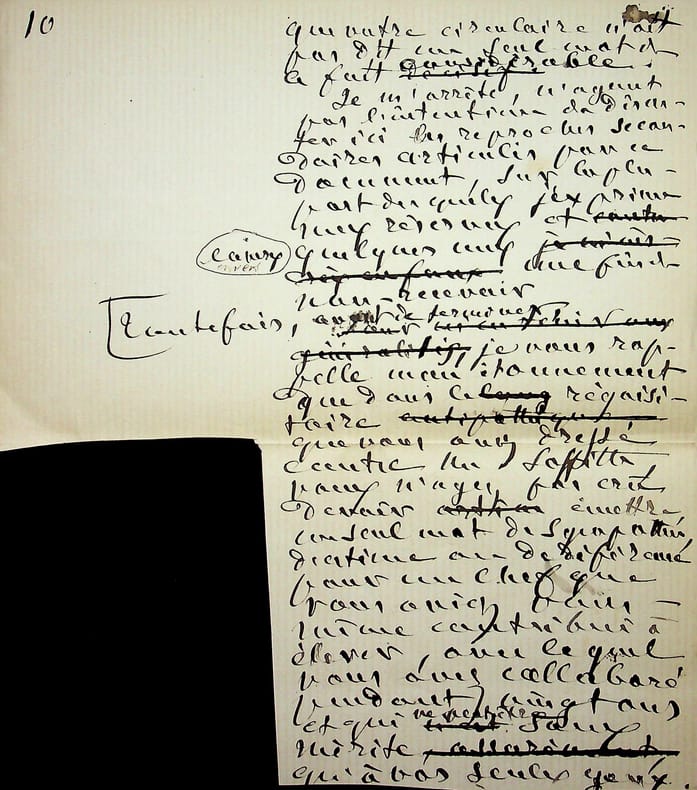 10
que votre circulaire n'ait
pas dit un seul mot de
ce fait décisif considérable.
Je m'arrête, n'ayant
pas l'intention de discu-
ter ici les reproches secon-
daires articulés par ce
document, sur la plu-
part desquels j'exprime
mes réserves et
quelques uns je
une fin de
non-recevoir
Toutefois, avant de terminer
généralités, je vous rap-
pelle mon étonnement
que dans le long réquisi-
toire antipathique
que vous avez dressé
contre M. Laffitte
vous n'ayez pas cru
devoir émettre
un seul mot de sympathie,
d'estime ou de déférence
pour un chef que
vous aviez vous-
même contribué à
élever, avec lequel
vous avez collaboré
pendant vingt ans
et qui n'est sans
mérite,
qu'à vos seuls yeux.